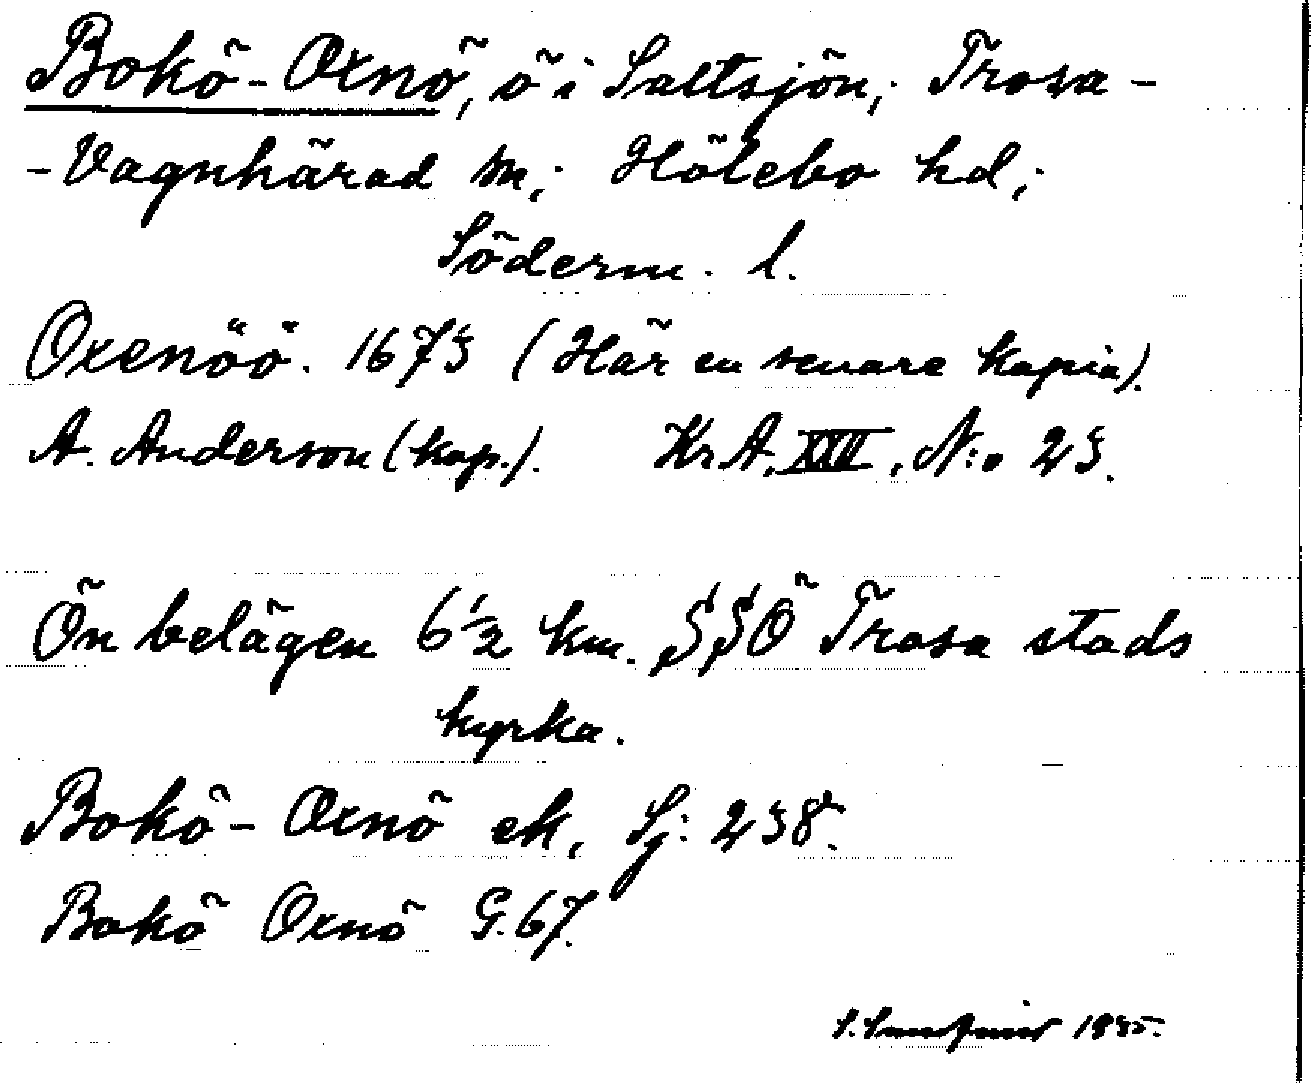 Bokö-Oxnö, ö i Saltsjön; Trosa-
-Vagnhärad sn; Hölebo hd;
Söderm. l.
Oxenöö. 1673 (Här en senare kopia).
A. Anderson (kop.). KrA, XXV, N:o 23.
Ön belägen 6 1/2 km. SSÖ Trosa stads
kyrka.
Bokö-Oxnö ek, Sj: 238.
Bokö Oxnö G.67.
S.